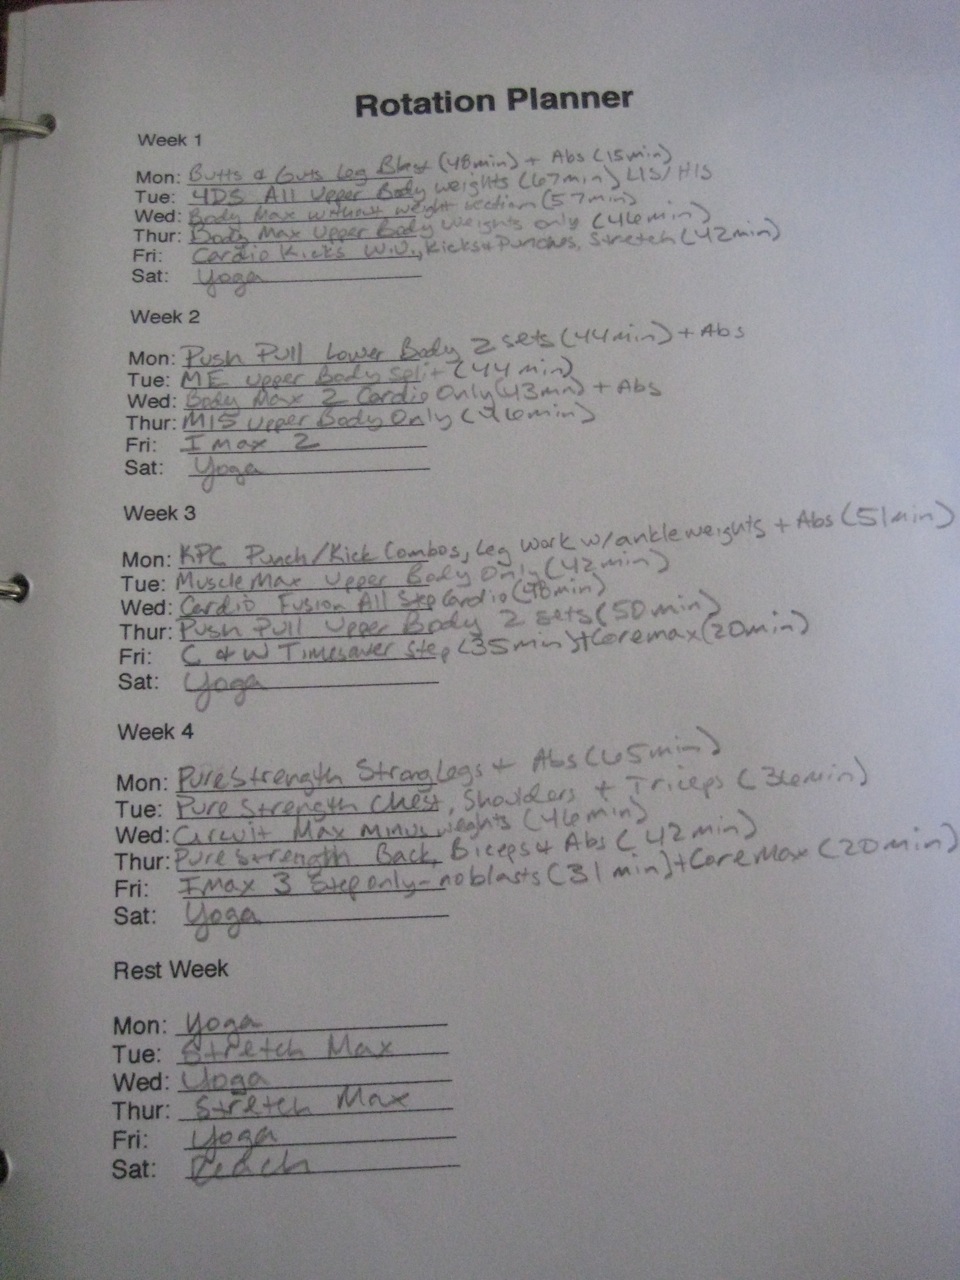 Rotation Planner
Week 1
Mon: Butts & Guts Leg Blast (48min) + Abs (15min)
Tue: 4DS All Upper Body weights (67min) LIS/HIS
Wed: Body Max without weight section (57min)
Thur: Body Max Upper Body weights only (46min)
Fri: Cardio Kicks W.U., Kicks & Punches, Stretch (42min)
Sat: Yoga
Week 2
Mon: Push Pull Lower Body 2 sets (44min) + Abs
Tue: ME Upper Body Split (44min)
Wed: Body Max 2 Cardio Only (43mn) + Abs
Thur: MIS Upper Body Only (46min)
Fri: I Max 2
Sat: Yoga
Week 3
Mon: KPC Punch/Kick Combos, Leg work w/ankle weights + Abs (51min)
Tue: Muscle Max Upper Body Only (42min)
Wed: Cardio Fusion All Step Cardio (48min)
Thur: Push Pull Upper Body 2 sets (50min)
Fri: C & W Timesaver Step (35min) + Coremax (20min)
Sat: Yoga
Week 4
Mon: Pure Strength Strong Legs + Abs (65min)
Tue: Pure Strength Chest, Shoulders + Triceps (36min)
Wed: Circuit Max minus weights (46min)
Thur: Pure Strength Back, Biceps & Abs (42min)
Fri: IMax 3 Step only - no blasts (31min) + Core Max (20min)
Sat: Yoga
Rest Week
Mon: Yoga
Tue: Stretch Max
Wed: Yoga
Thur: Stretch Max
Fri: Yoga
Sat: